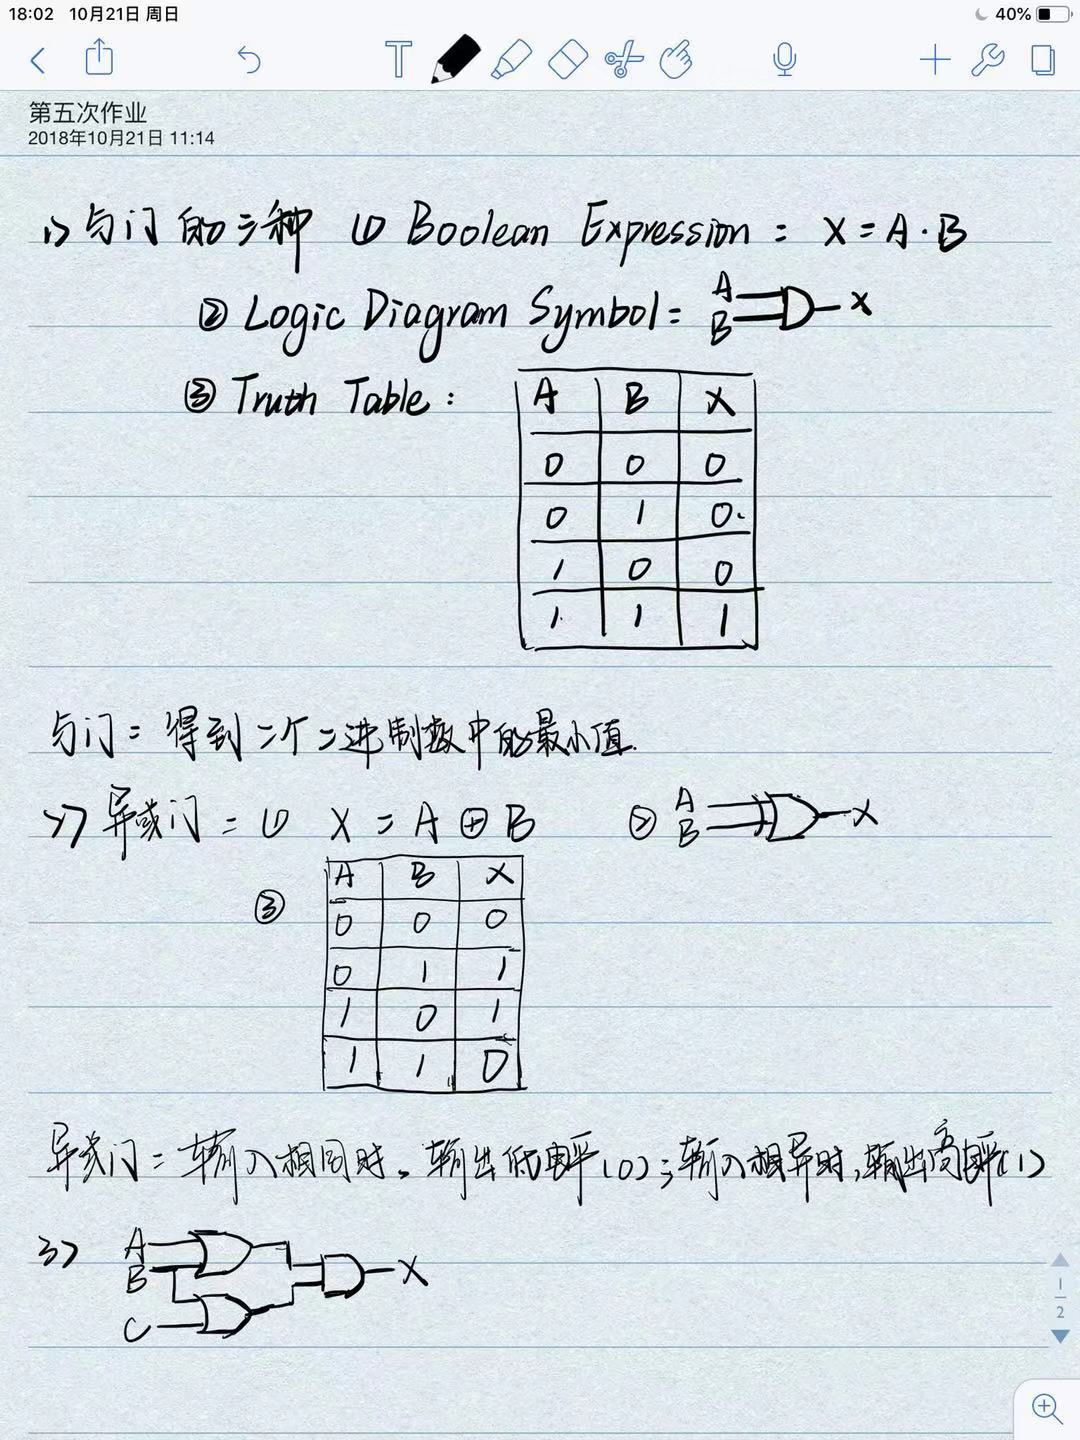 18:02 10月21日 周日 40%
T
第五次作业
2018年10月21日 11:14
1> 与门的三种 ① Boolean Expression: X=A·B
② Logic Diagram Symbol: A B X
③ Truth Table:
A B X
0 0 0
0 1 0
1 0 0
1 1 1
与门:得到二个二进制数中的最小值.
2> 异或门: ① X = A ⊕ B ② A B X
③
A B X
0 0 0
0 1 1
1 0 1
1 1 0
异或门:输入相同时,输出低电平(0);输入相异时,输出高电平(1)
3> A B C X
1
2